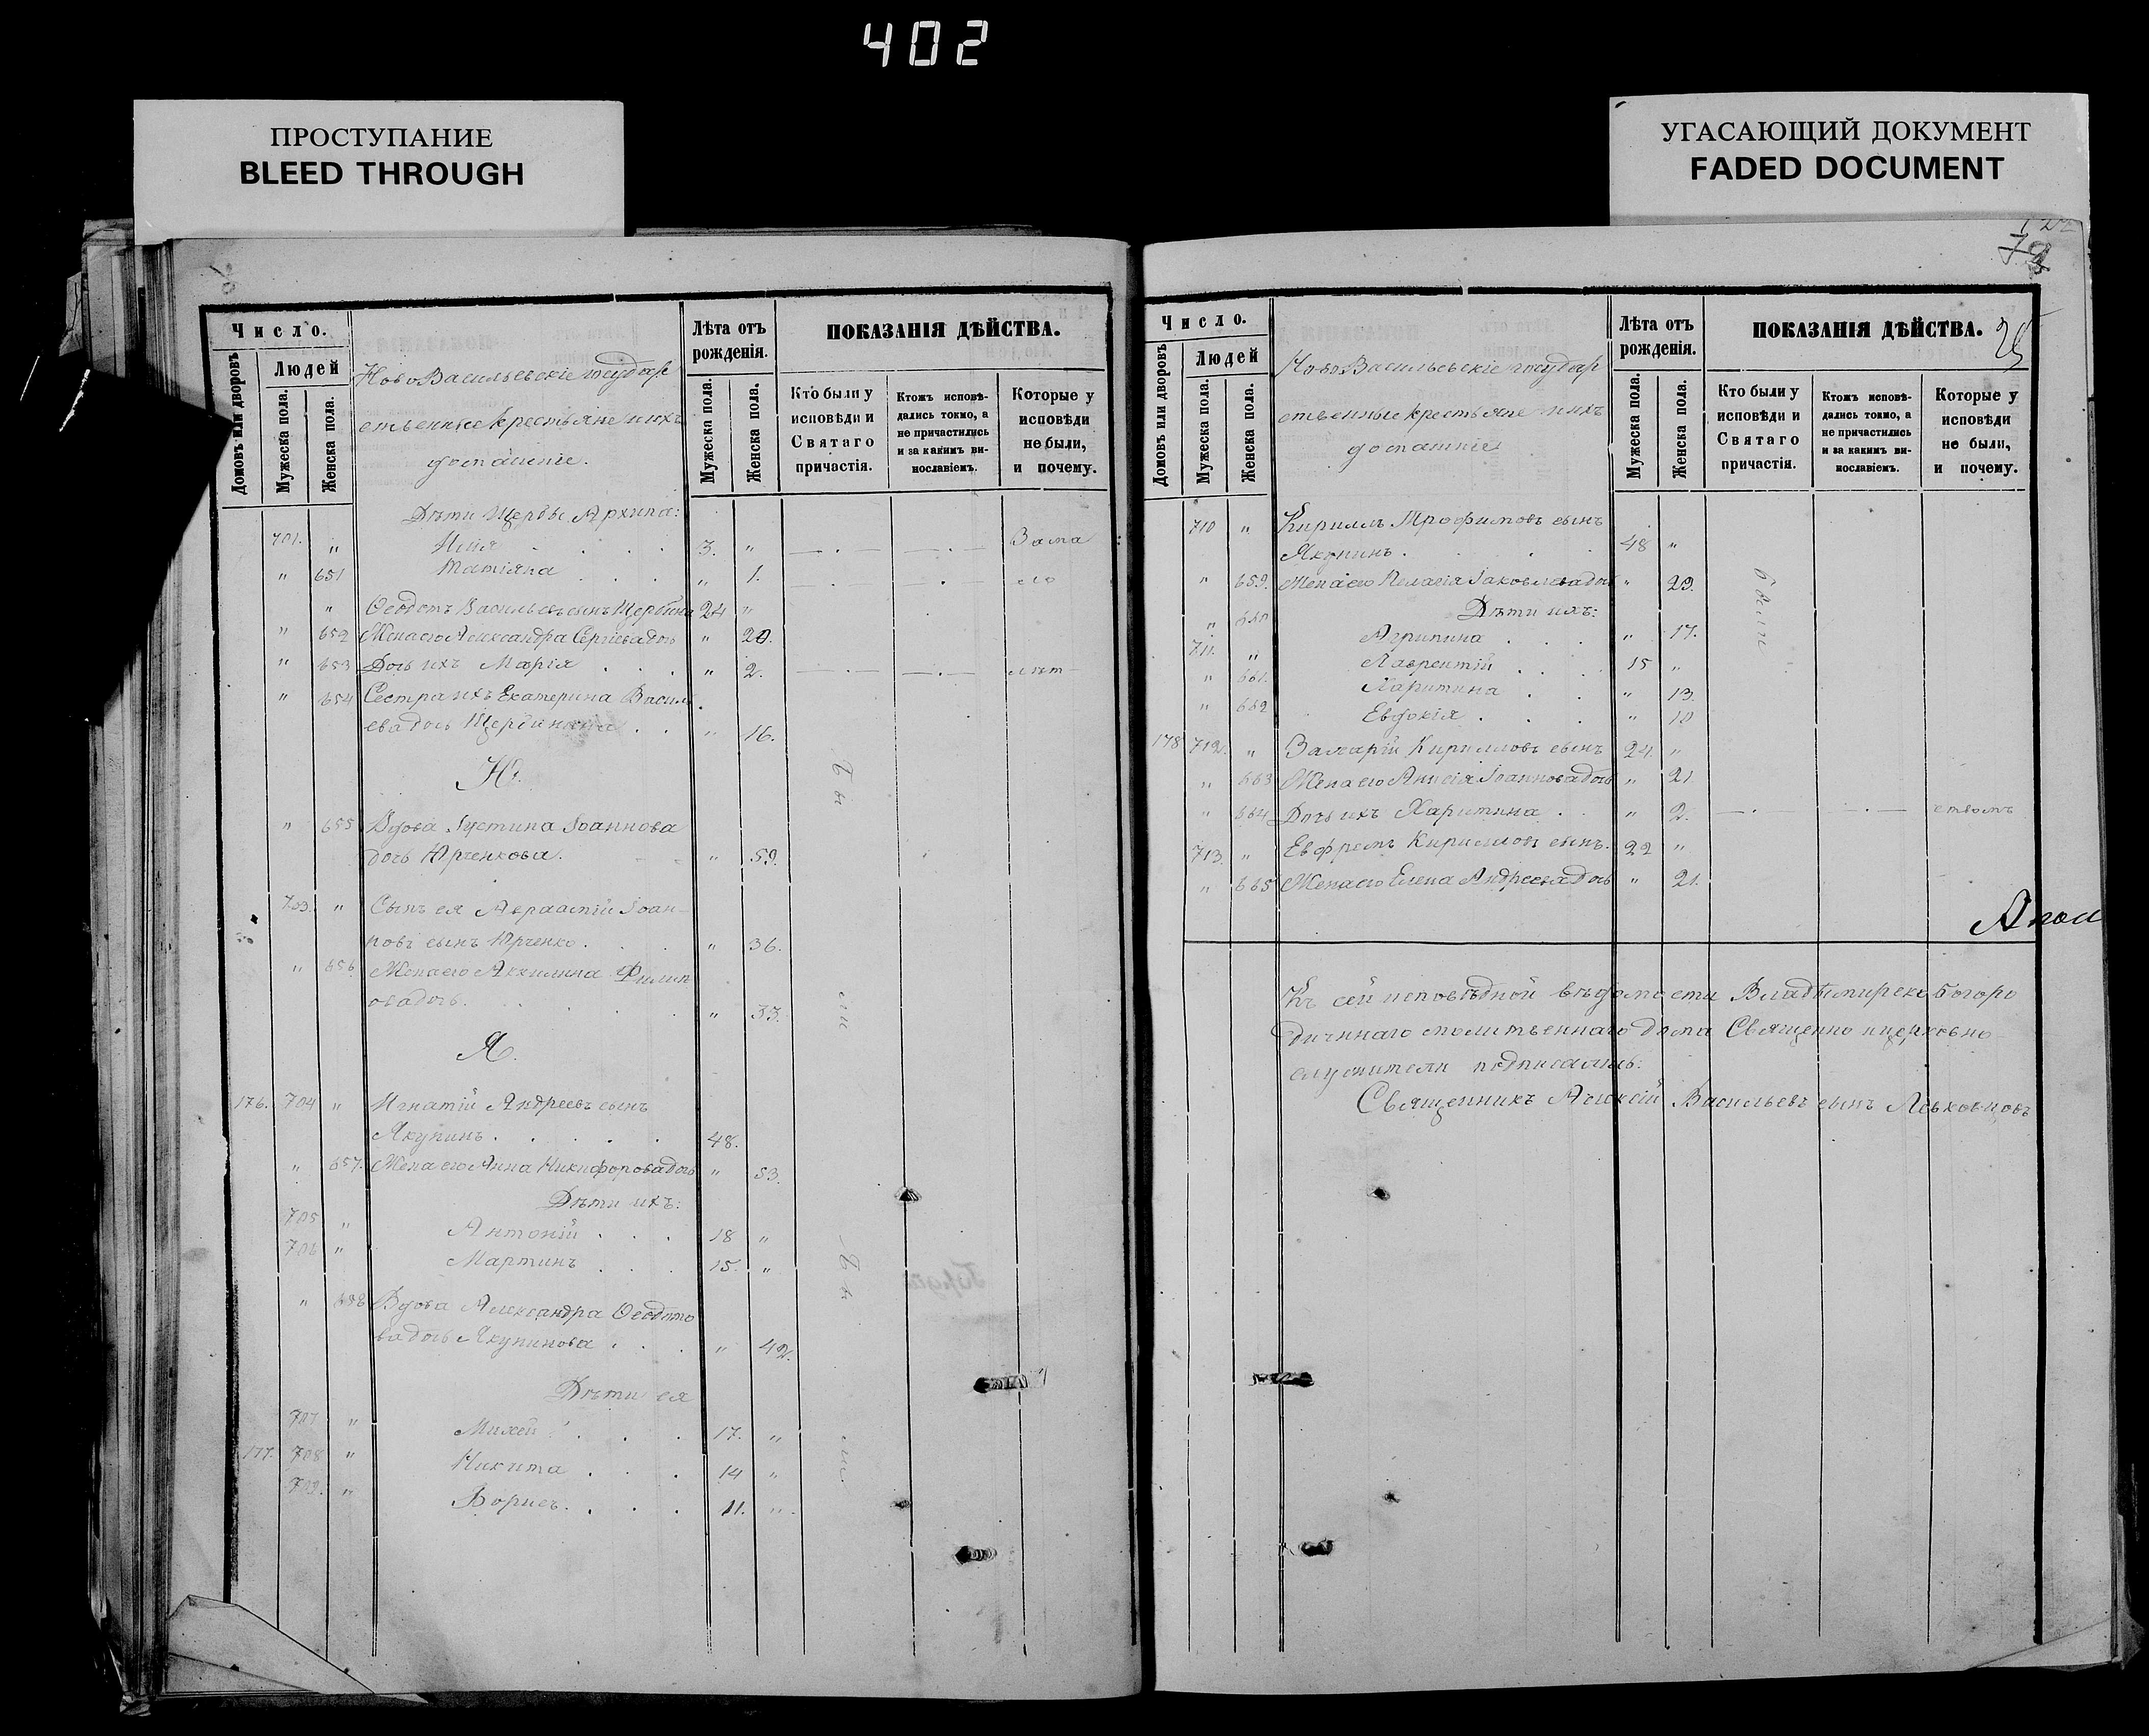 402
ПРОСТУПАНИЕ
BLEED THROUGH
УГАСАЮЩИЙ ДОКУМЕНТ
FADED DOCUMENT
Число.
Людей
Домовъ или дворовъ
Мужеска пола.
Женска пола.
НовоВасильевскіе государ
ственные крестьяне и ихъ
домашніе.
Лѣта отъ рожденія.
Мужеска пола.
Женска пола.
ПОКАЗАНІЯ ДѢЙСТВА.
Кто были у исповѣди и Святаго причастія.
Ктожъ исповѣдались токмо, а не причастились и за какимъ винославіемъ.
Которые у исповѣди не были, и почему.
Дѣти Щербы Архипа:
701. " Илія 3. "
" 651 Татіяна " 1.
" Ѳеодотъ Васильевъ сынъ 24 "
" 652 Жена его Александра Сергіева дочь " 20.
" 653 Дочь ихъ Марія " 2. лѣт
" 654 Сестра ихъ Екатерина Василь
ева дочь " 16.
Ю.
" 655 Вдова Іустина Іоаннова
дочь Юрченкова. " 59.
703. " Сынъ ея Авраамій Іоан-
новъ сынъ Юрченко. " 36.
" 656 Жена его Акилина Филип
ова дочь. " 33.
Я.
176. 704 " Игнатій Андреевъ сынъ
Якунинъ. 48.
" 657. Жена его Анна Никифорова дочь " 53.
Дѣти ихъ:
705 " Антоній 18 "
706 " Мартинъ 15. "
" 658 Вдова Александра Ѳеодото
ва дочь Якунинова " 42.
Дѣти ея
707 " Михей 17. "
177. 708 " Никита 14 "
709. " Борисъ. 11. "
Были
Были
79
25
Число.
Людей
Домовъ или дворовъ
Мужеска пола.
Женска пола.
НовоВасильевскіе государ
ственные крестьяне и ихъ
домашніе
Лѣта отъ рожденія.
Мужеска пола.
Женска пола.
ПОКАЗАНІЯ ДѢЙСТВА.
Кто были у исповѣди и Святаго причастія.
Ктожъ исповѣдались токмо, а не причастились и за какимъ винославіемъ.
Которые у исповѣди не были, и почему.
710 " Кириллъ Трофимовъ сынъ
Якунинъ. 48 "
" 659. Жена его Пелагія Іаковлева дочь "
Дѣти ихъ:
" 660 Агрипина " 17.
711. " Лаврентій 15 "
" 661. Харитина " 13.
" 662 Евдокія " 10
178 712. " Захарій Кирилловъ сынъ 24. "
" 663 Жена его Анисія Іоаннова дочь " 21
" 664 Дочь ихъ Харитина " 2. ствомъ
713. " Евфремъ Кирилловъ сынъ. 22 "
" 665 Жена его Елена Андреева дочь " 21.
были
Къ сей исповѣдной вѣдомости Владимирско Богоро
дичннаго молитвеннаго дома Священно и церковно
служители подписались:
Священникъ Алексій Васильевъ сынъ